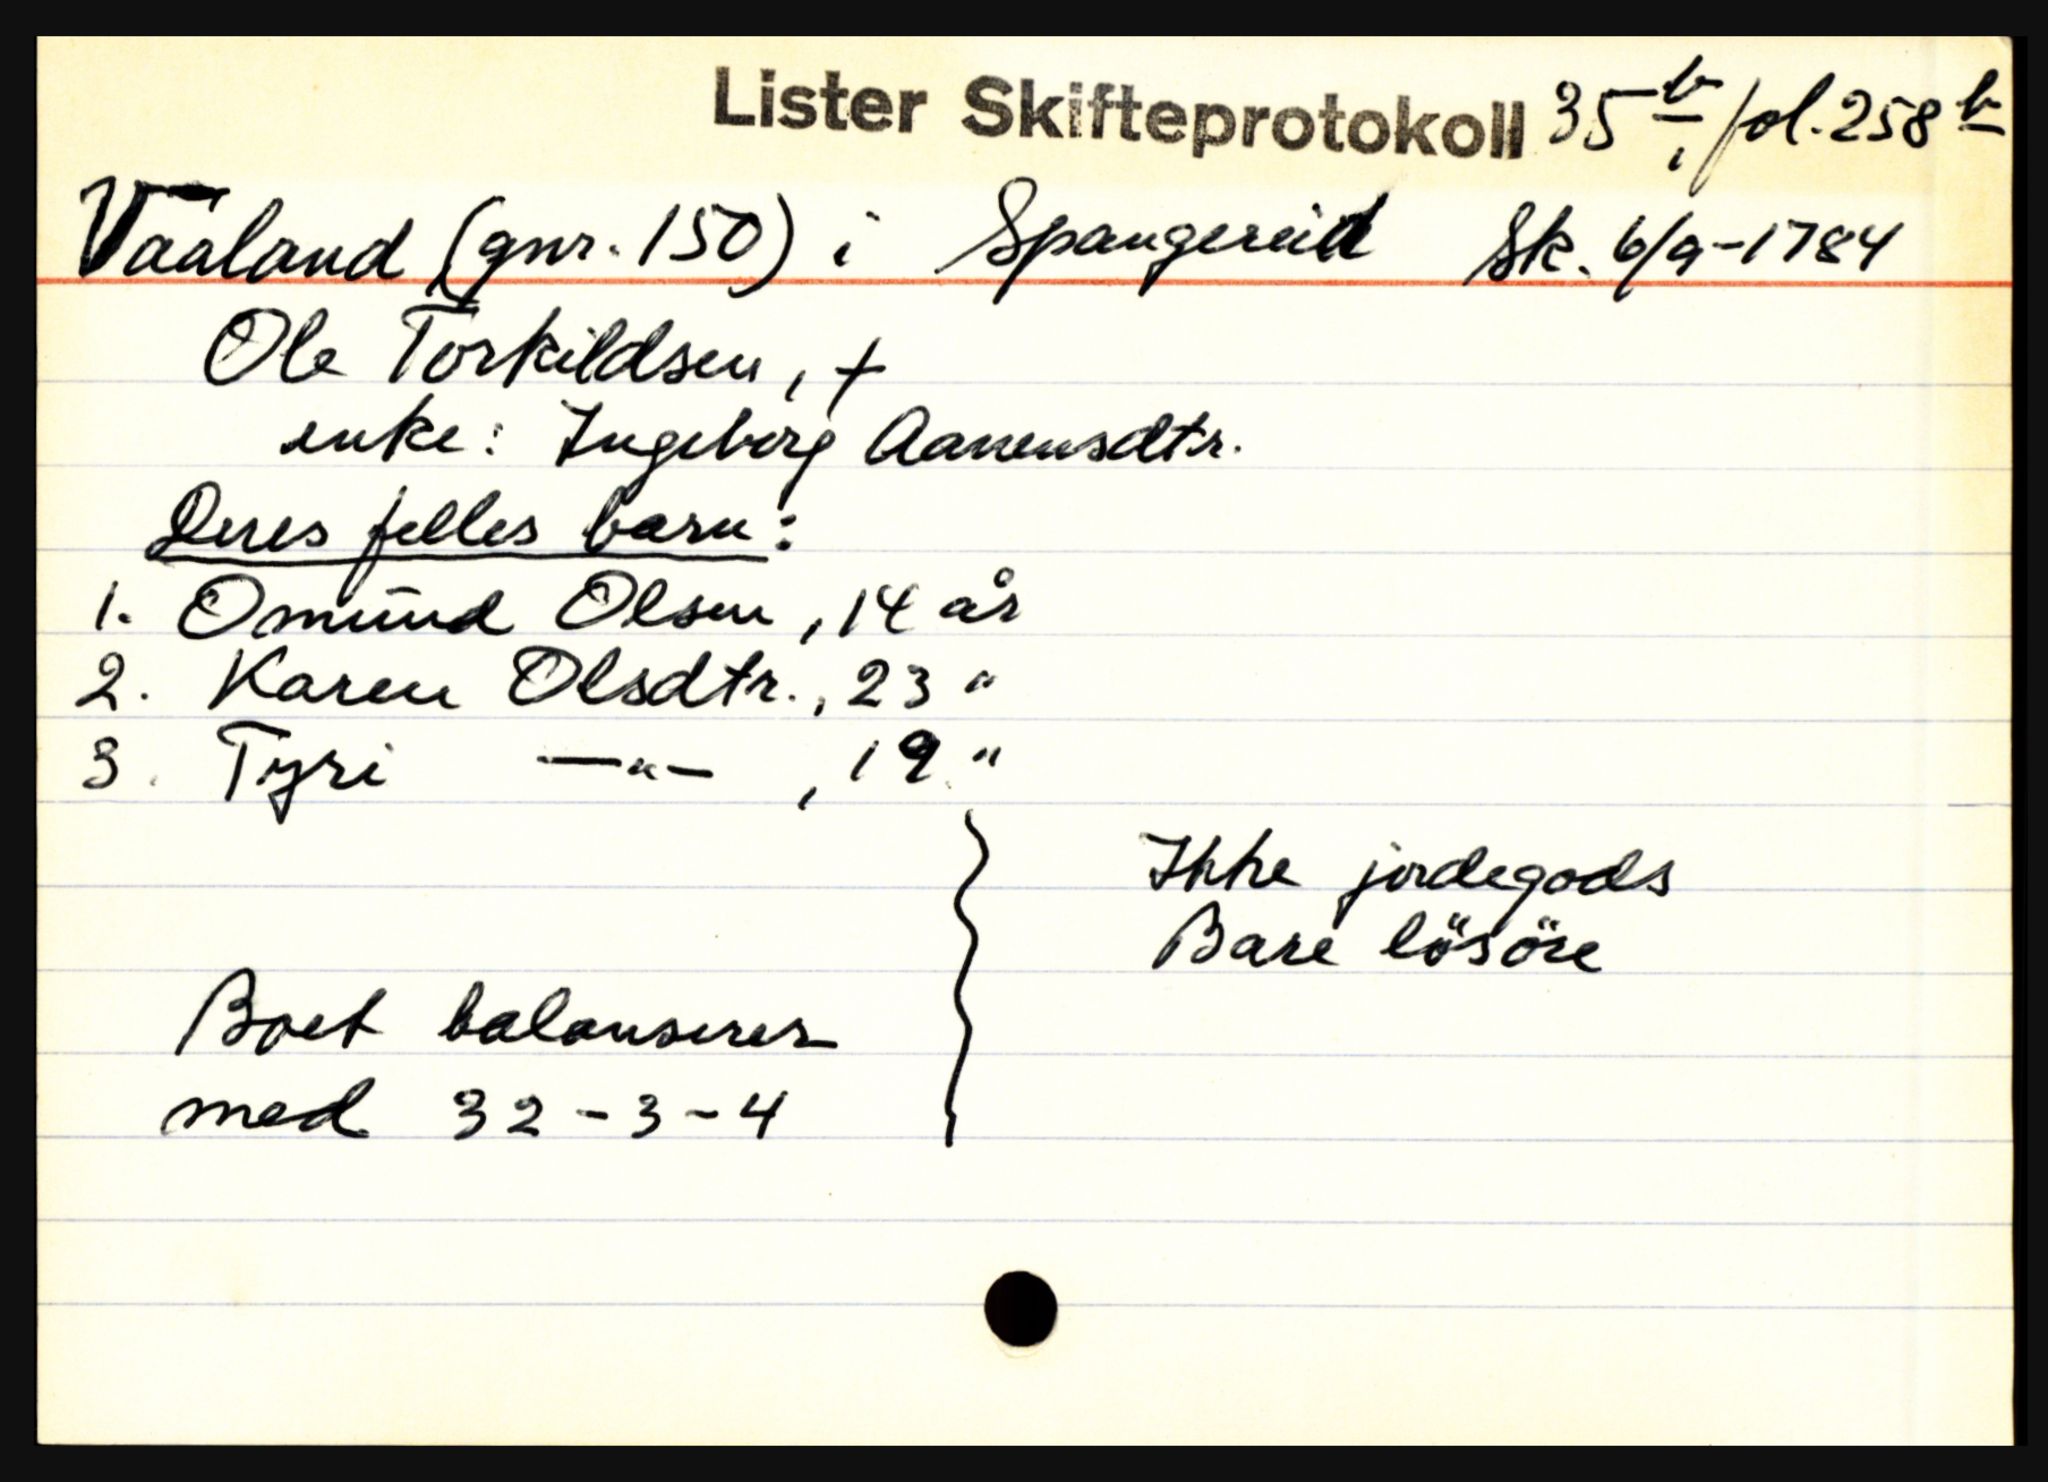 Lister Skifteprotokoll 35 b, fol. 258 b
Vaaland (gnr. 150) i Spangereid Sk. 6/9-1784
Ole Torkildsen, +
enke: Ingeborg Aanensdtr.
Deres felles barn:
1. Omund Olsen, 14 år
2. Karen Olsdtr., 23 "
3. Tyri —"—, 19 "
Ikke jordegods
Bare lösöre
Boet balanserer
med 32-3-4